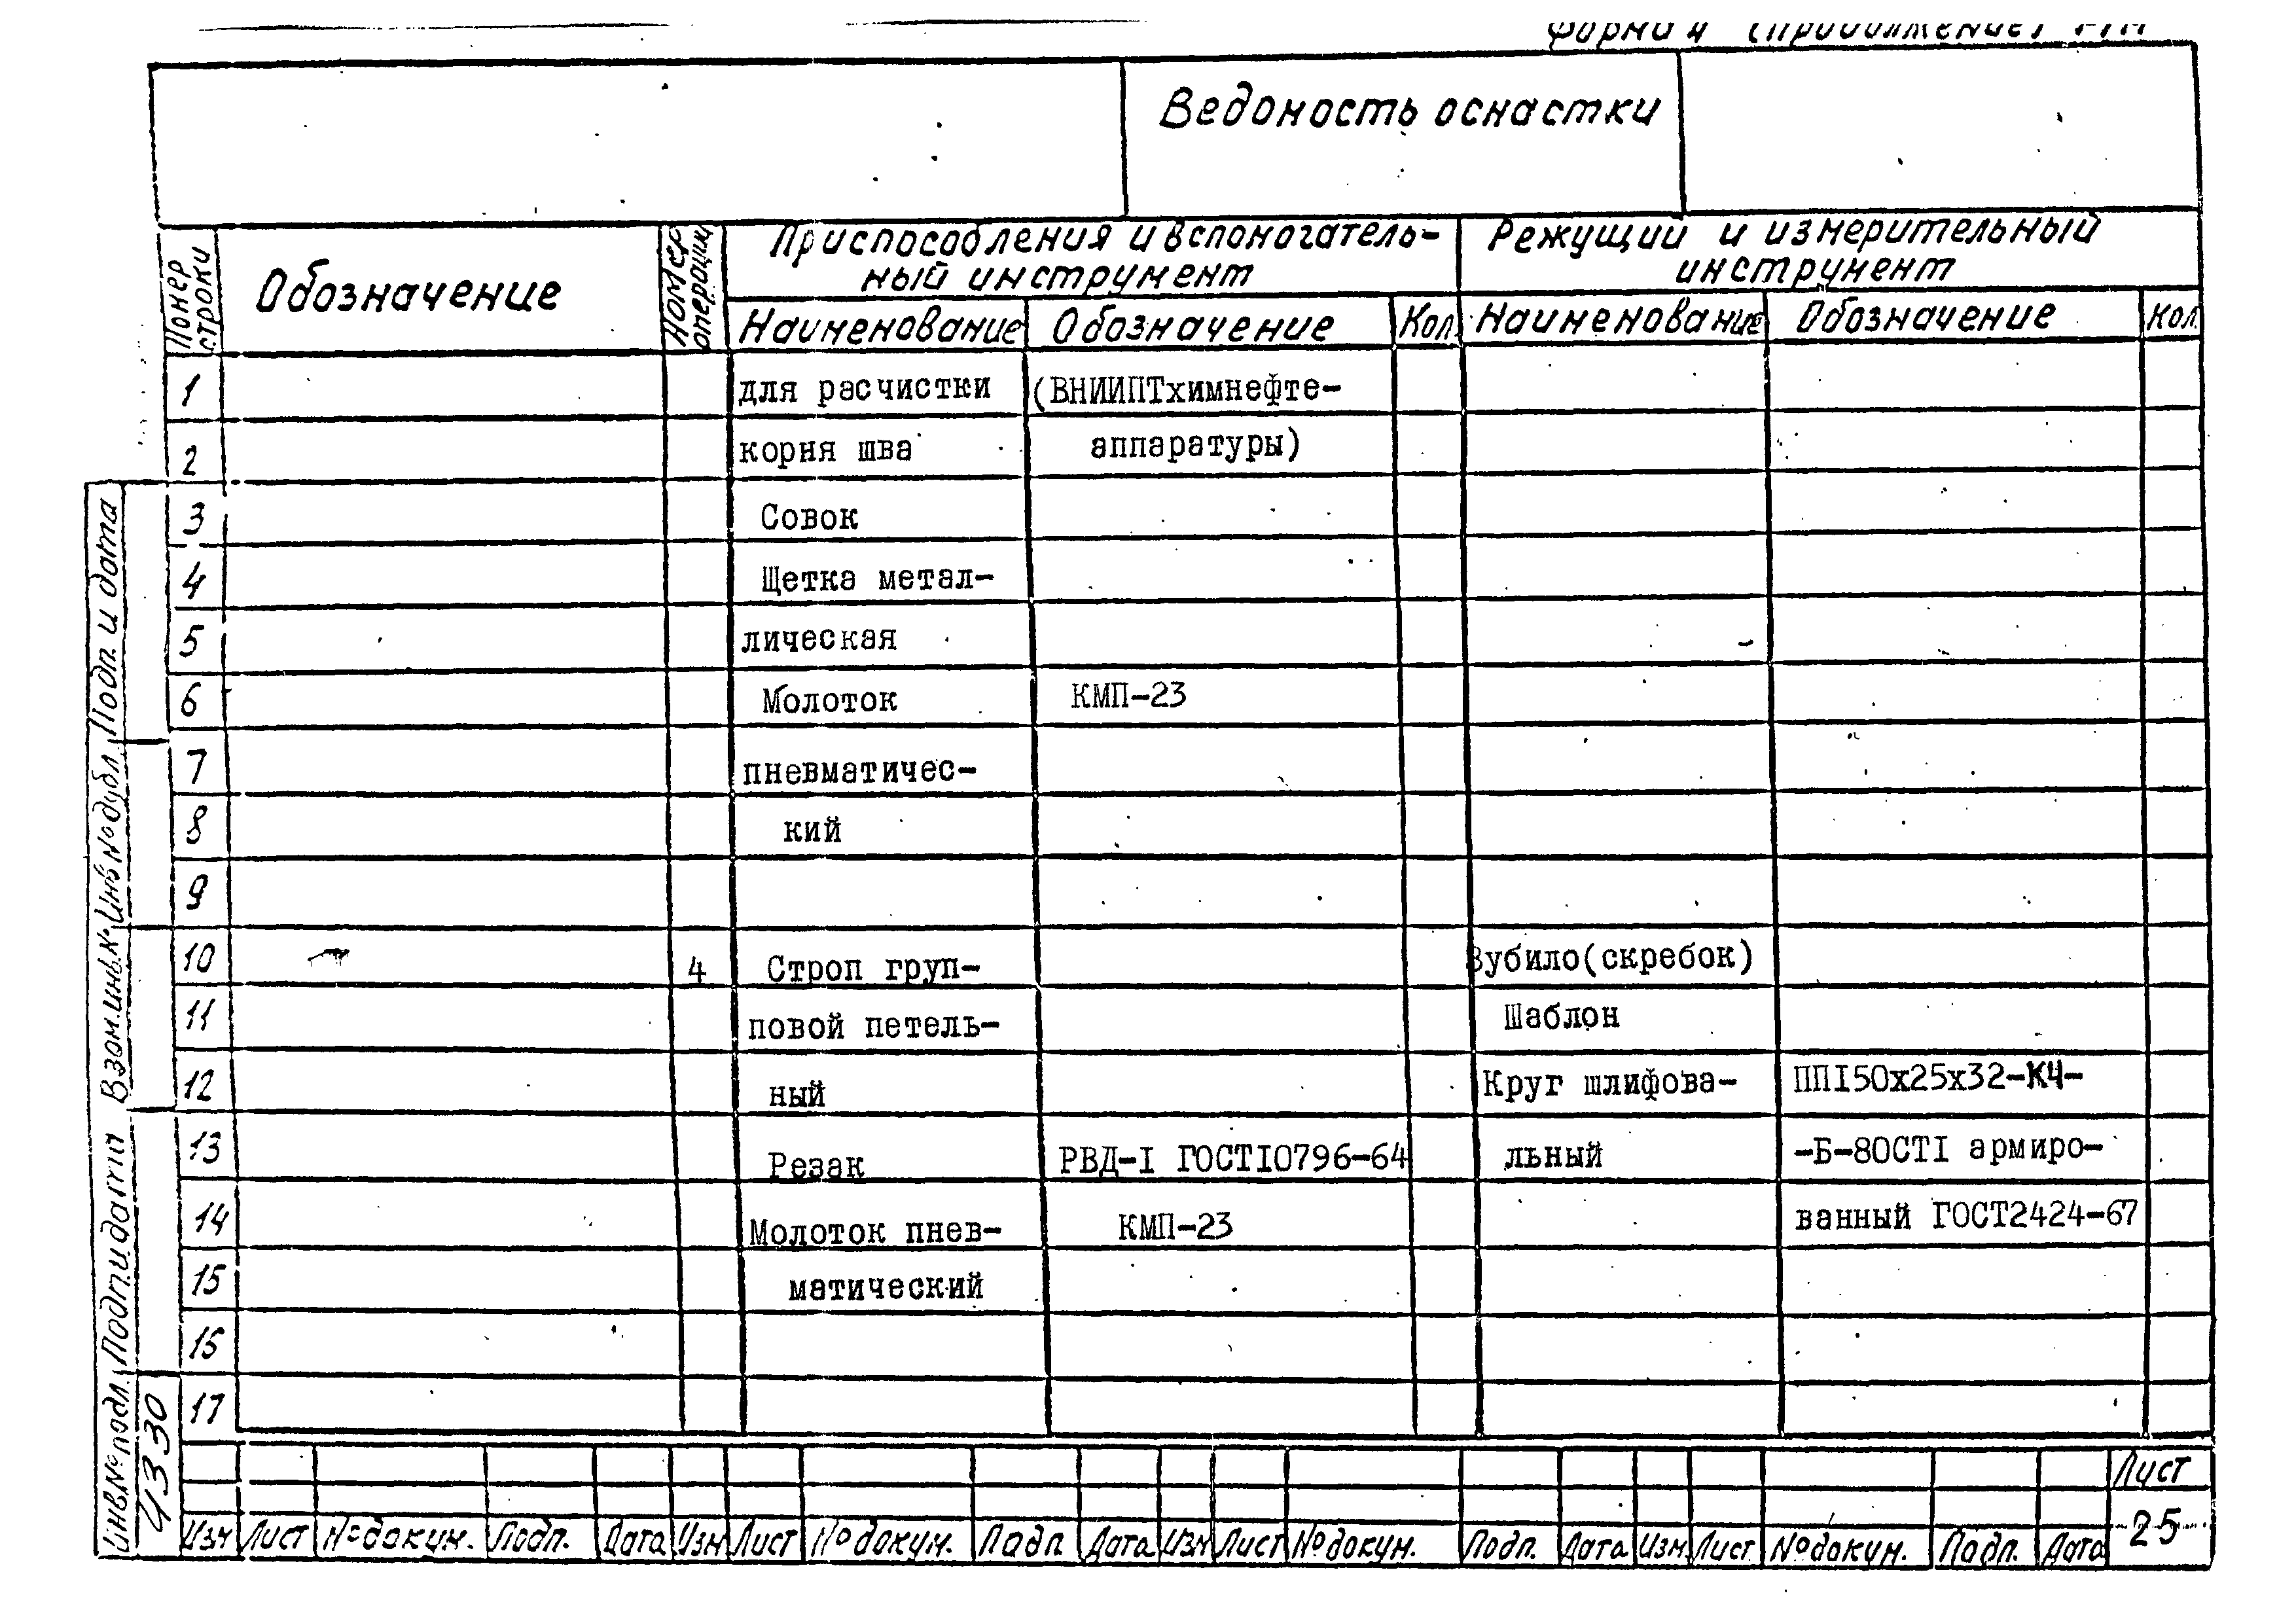 Форма 4 (продолжение) РТМ
Ведомость оснастки
Номер строки
Обозначение
Номер операции
Приспособления и вспомогатель-
ный инструмент
Режущий и измерительный
инструмент
Наименование Обозначение Кол. Наименование Обозначение Кол.
1 для расчистки (ВНИИПТхимнефте-
2 корня шва аппаратуры)
3 Совок
4 Щетка метал-
5 лическая
6 Молоток КМП-23
7 пневматичес-
8 кий
9
10 4 Строп груп- Зубило(скребок)
11 повой петель- Шаблон
12 ный Круг шлифова- ПП150х25х32-КЧ-
13 Резак РВД-1 ГОСТ10796-64 льный -Б-80СТ1 армиро-
14 Молоток пнев- КМП-23 ванный ГОСТ2424-67
15 матический
16
17
Лист
25
Изм Лист № докум. Подп. Дата Изм Лист № докум. Подп Дата Изм Лист № докум. Подп. Дата Изм. Лист № докум. Подп. Дата
Инв.№ подл. Подп.и дата Взам.инв.№ Инв № дубл. Подп. и дата
4330